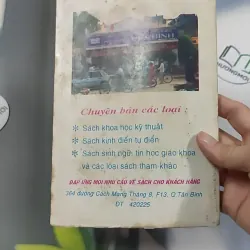 Chuyên bán các loại :
* Sách khoa học kỹ thuật
* Sách kinh điển tự điển
* Sách sinh ngữ tin học giáo khoa
và các loại sách tham khảo
ĐÁP ỨNG MỌI NHU CẦU VỀ SÁCH CHO KHÁCH HÀNG
364 đường Cách Mạng Tháng 8, F13, Q.Tân Bình
ĐT 420225